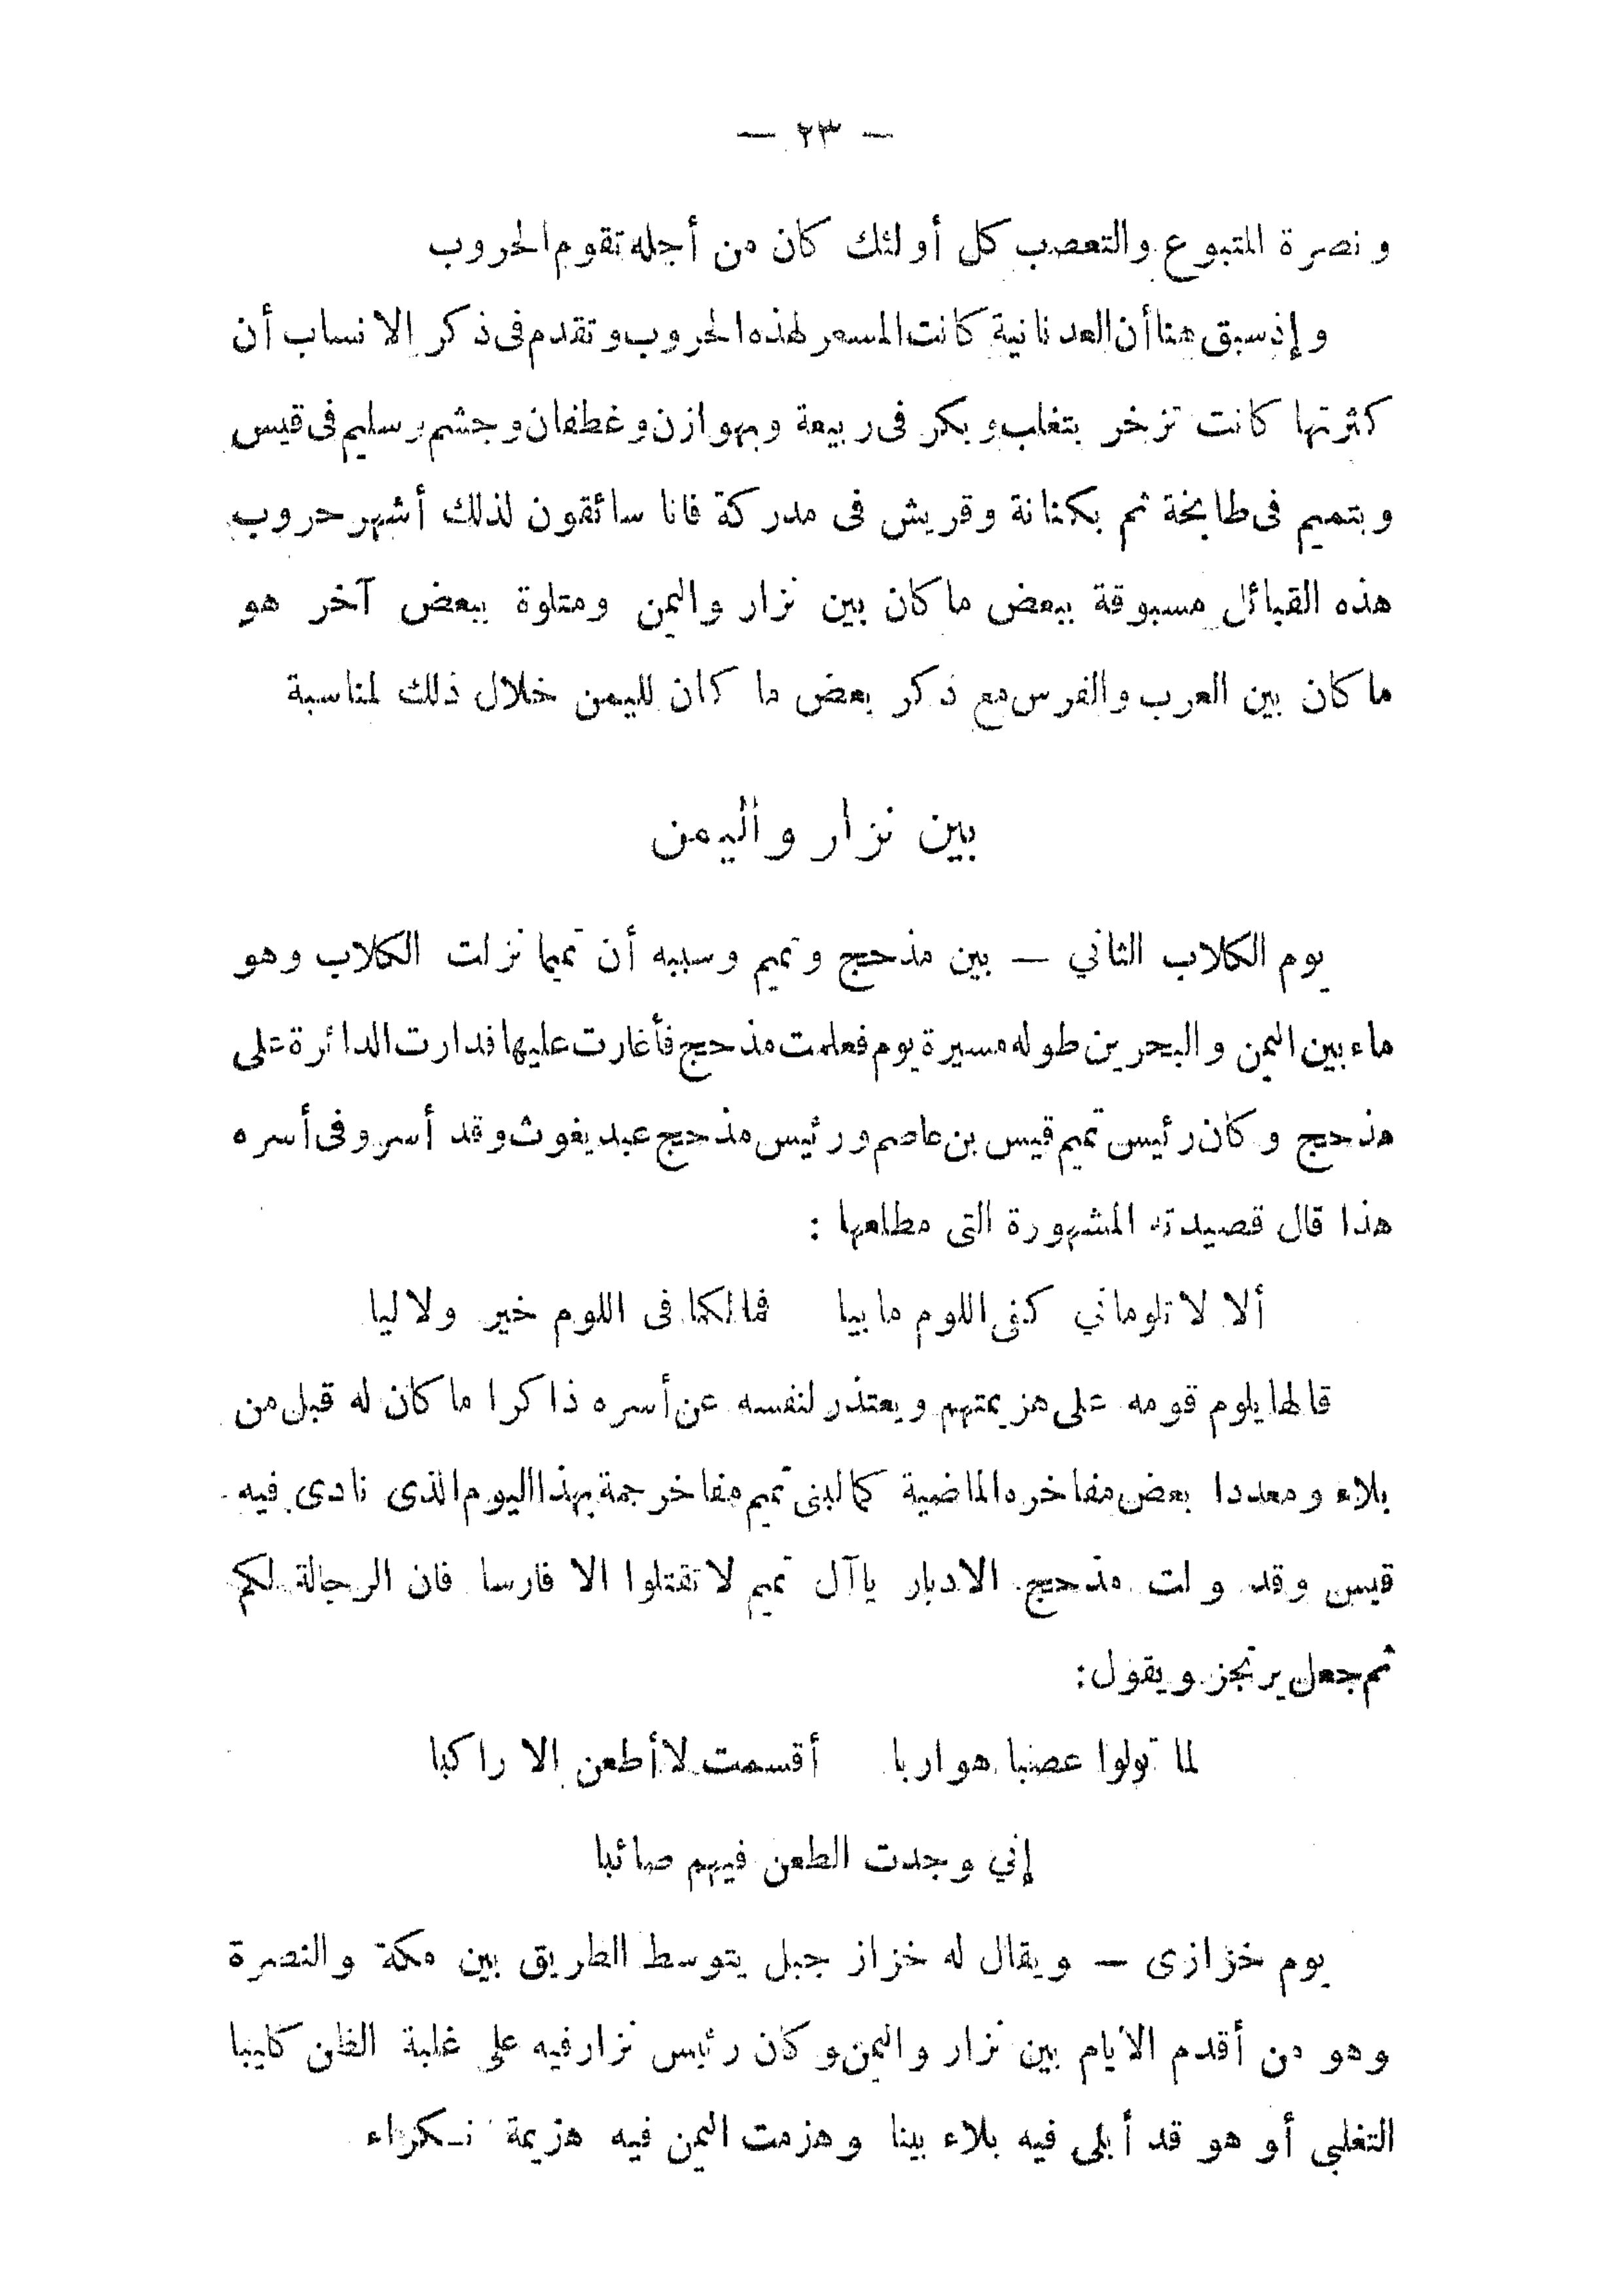 — ٢٣ —
ونصرة المتبوع والتعصب كل أولئك كان من أجله تقوم الحروب
وإذ سبق هنا أن العدنانية كانت المسعر لهذه الحروب وتقدم فى ذكر الانساب أن
كثرتها كانت تزخر بتغلب وبكر فى ربيعة وبهوازن وغطفان وجشم وسليم فى قيس
وبتميم فى طابخة ثم بكنانة وقريش فى مدركة فانا سائقون لذلك أشهر حروب
هذه القبائل مسبوقة ببعض ما كان بين نزار واليمن ومتلوة ببعض آخر هو
ما كان بين العرب والفرس مع ذكر بعض ما كان لليمن خلال ذلك لمناسبة
بين نزار واليمن
يوم الكلاب الثاني — بين مذحج وتميم وسببه أن تميما نزلت الكلاب وهو
ماء بين اليمن والبحرين طوله مسيرة يوم فعلمت مذحج فأغارت عليها فدارت الدائرة على
مذحج وكان رئيس تميم قيس بن عاصم ورئيس مذحج عبد يغوث وقد أسر وفى أسره
هذا قال قصيدته المشهورة التى مطلعها :
ألا لا تلوماني كفى اللوم ما بيا فمالكما فى اللوم خير ولا ليا
قالها يلوم قومه على هزيمتهم ويعتذر لنفسه عن أسره ذاكرا ما كان له قبل من
بلاء ومعددا بعض مفاخره الماضية كما لبنى تميم مفاخر جمة بهذا اليوم الذى نادى فيه
قيس وقد ولت مذحج الادبار يا آل تميم لا تقتلوا الا فارسا فان الرجالة لكم
ثم جعل يرتجز ويقول:
لما تولوا عصبا هواربا أقسمت لا أطعن الا راكبا
إني وجدت الطعن فيهم صائبا
يوم خزازى — ويقال له خزاز جبل يتوسط الطريق بين مكة والنصرة
وهو من أقدم الأيام بين نزار واليمن وكان رئيس نزار فيه على غلبة الظن كليبا
التغلبى أو هو قد أبلى فيه بلاء بينا وهزمت اليمن فيه هزيمة نكراء